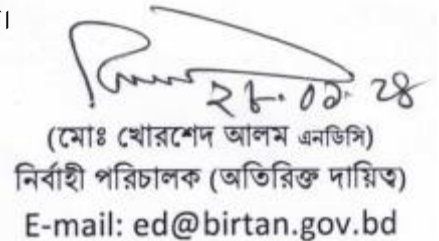 (মোঃ খোরশেদ আলম এনডিসি)
নির্বাহী পরিচালক (অতিরিক্ত দায়িত্ব)
E-mail: ed@birtan.gov.bd